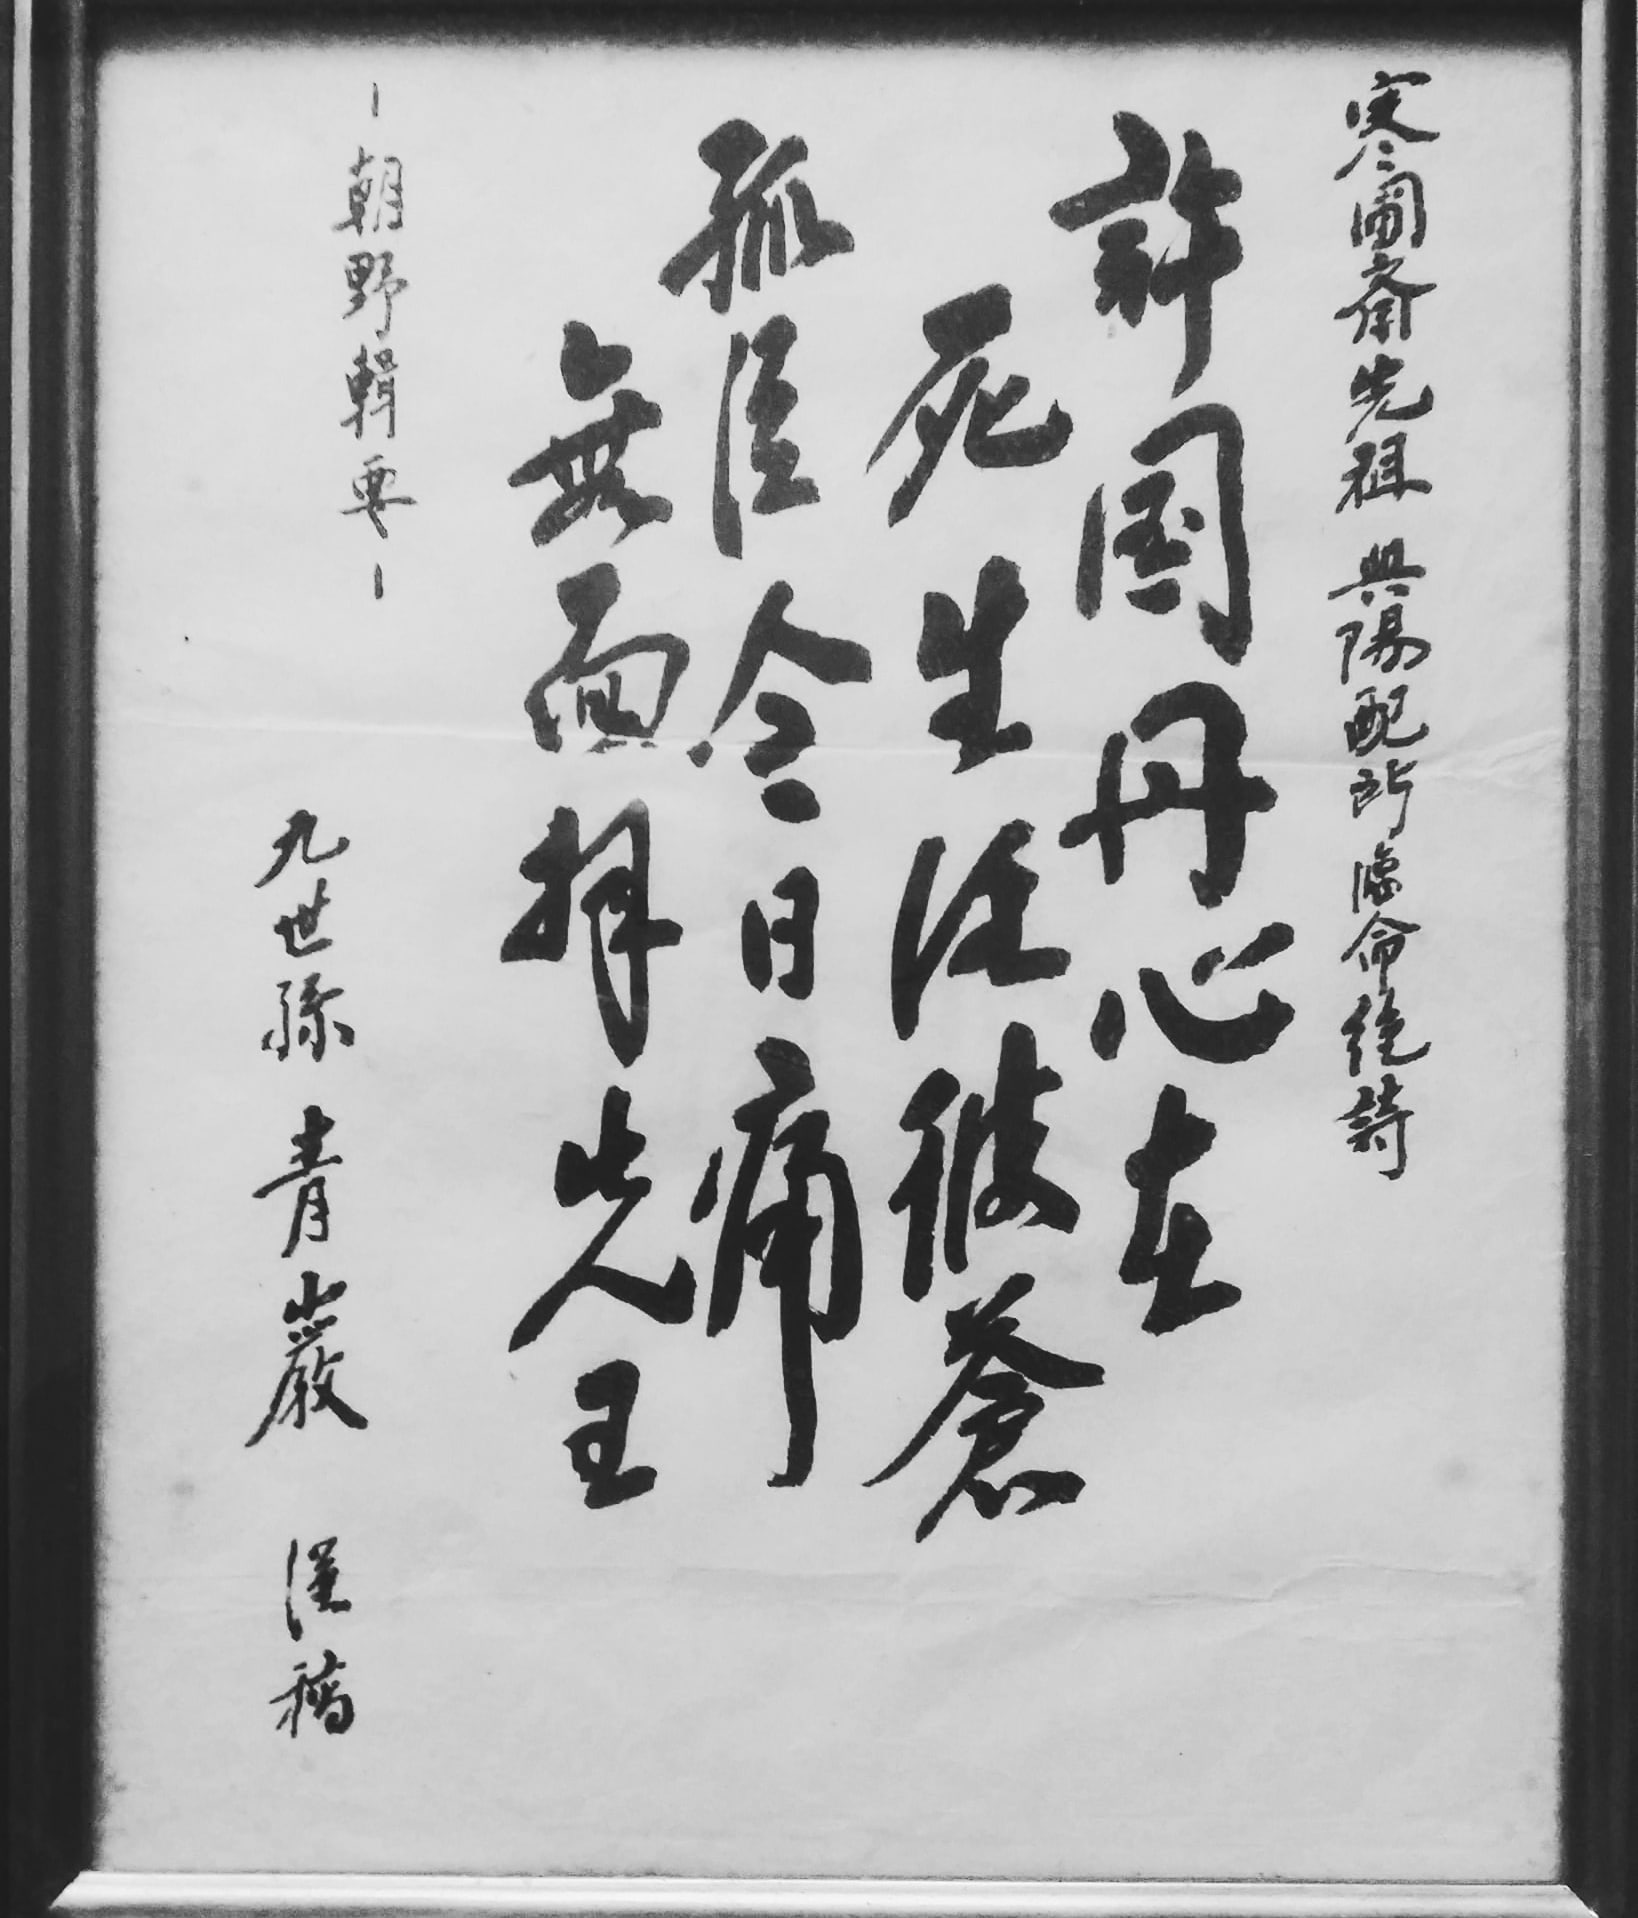 寒圃斎先祖 興陽配所臨命絶詩
許国丹心在
死生任彼蒼
孤臣今日痛
無面拜先王
－朝野輯要－
九世孫 青巖